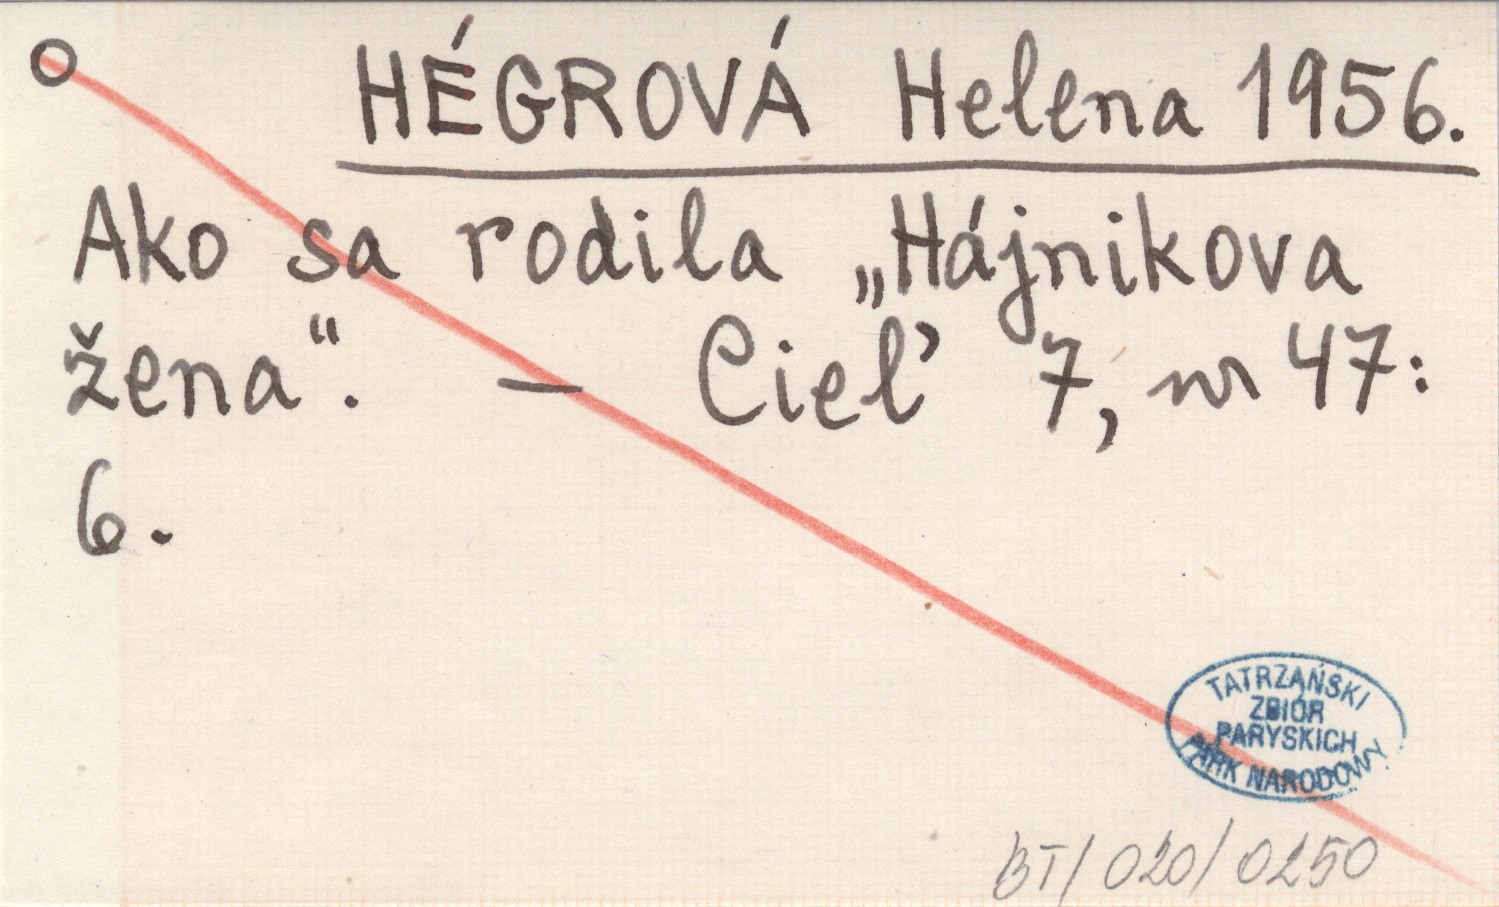 HÉGROVÁ Helena 1956.
Ako sa rodila „Hájnikova
žena“. — Cieľ 7, nr 47:
6.
TATRZAŃSKI
ZBIÓR
PARYSKICH
PARK NARODOWY
BT/020/0250